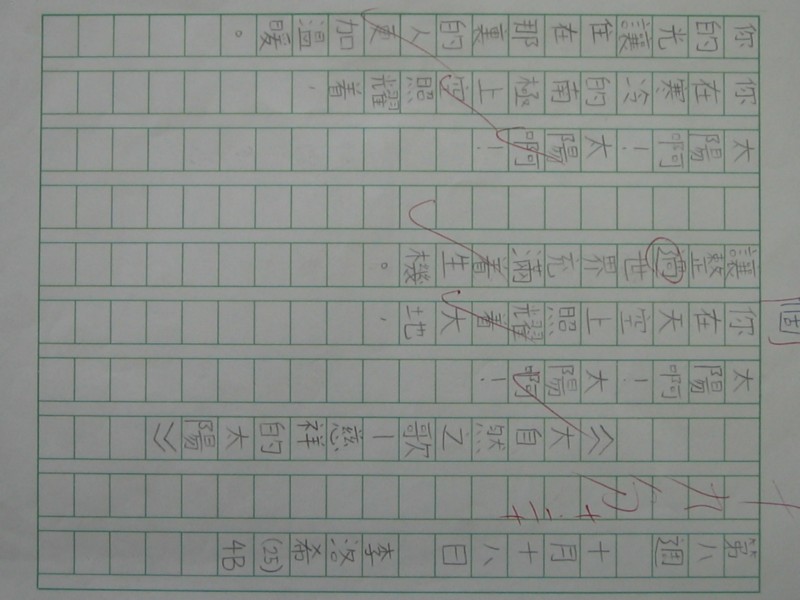 第八週 十月十八日 李洛希 (25) 4B
《大自然之歌—慈祥的太陽》
太陽啊!太陽啊!
你在天空上照耀着大地,
個
讓整週世界充滿着生機。
太陽啊!太陽啊!
你在寒冷的南極上空照耀着,
你的光讓住在那裏的人更加溫暖。